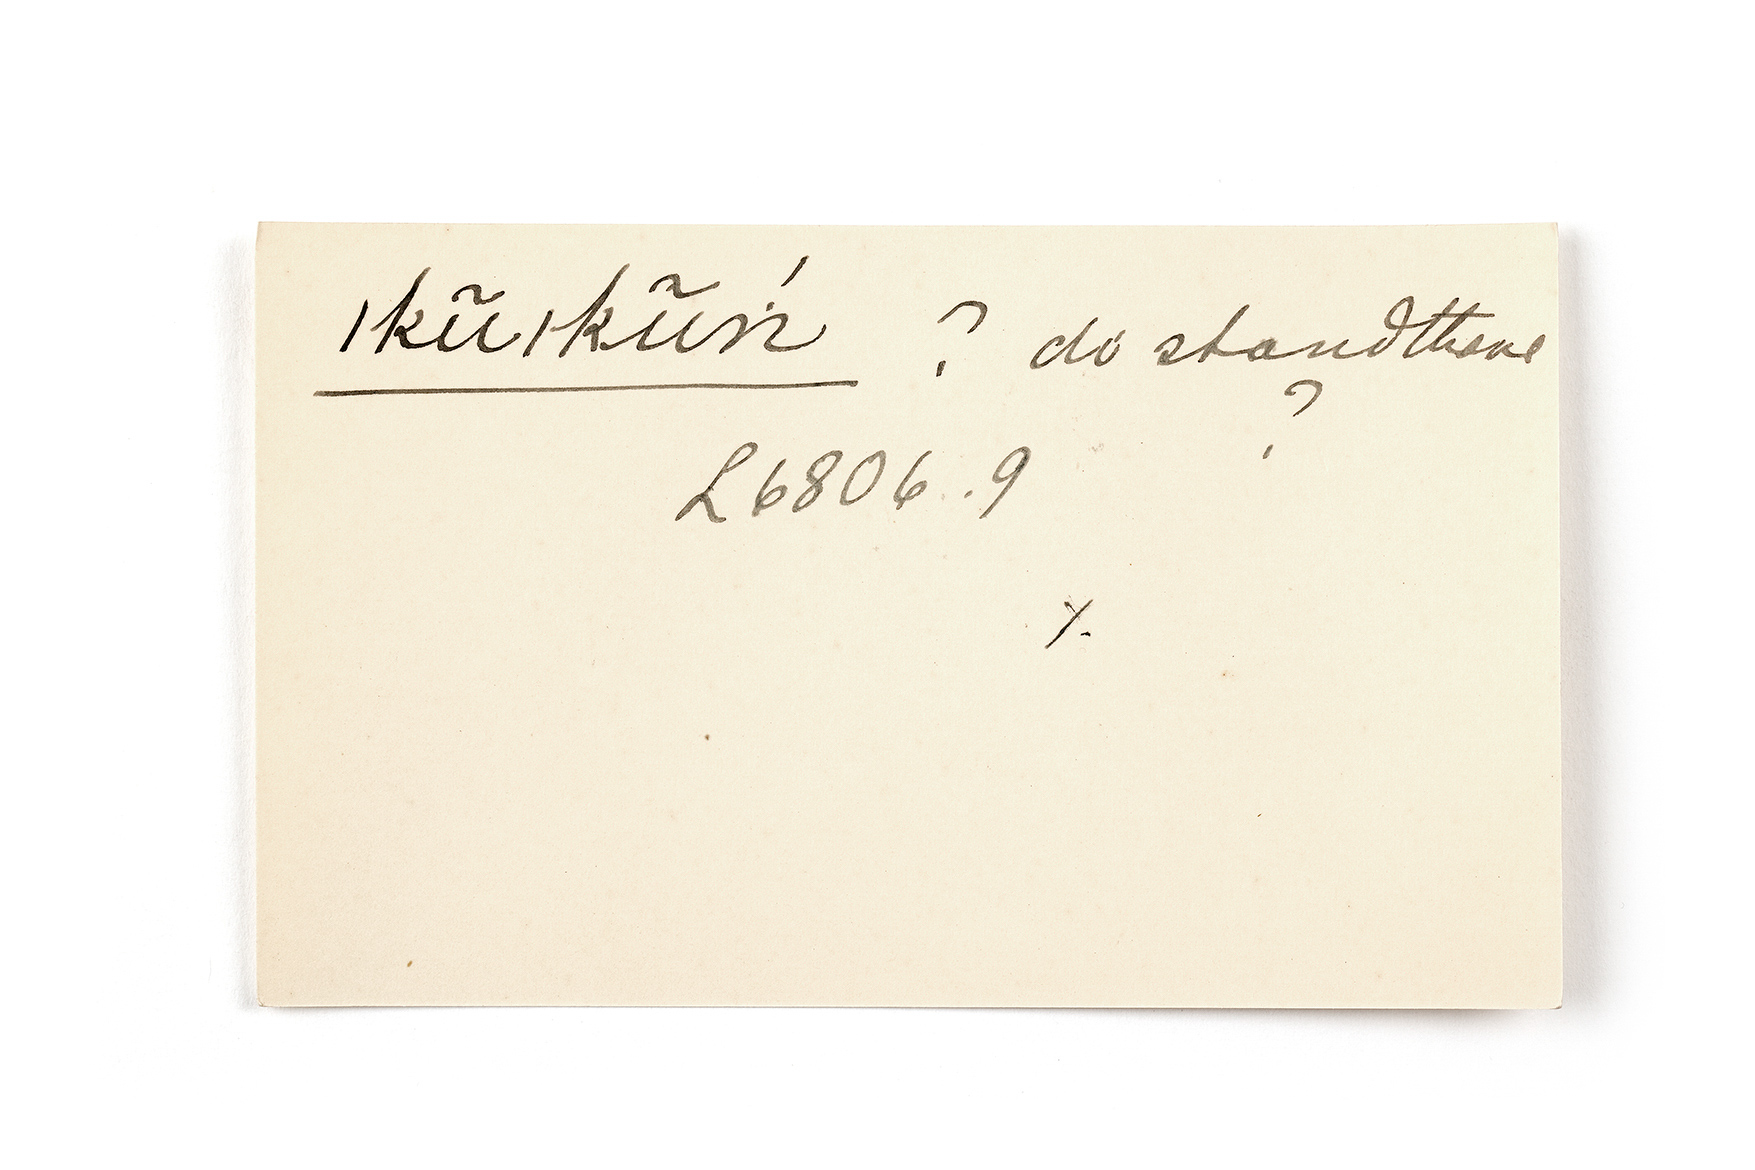 ǀkũǀkũṅ ? do stand there
?
L 6806..9
X.